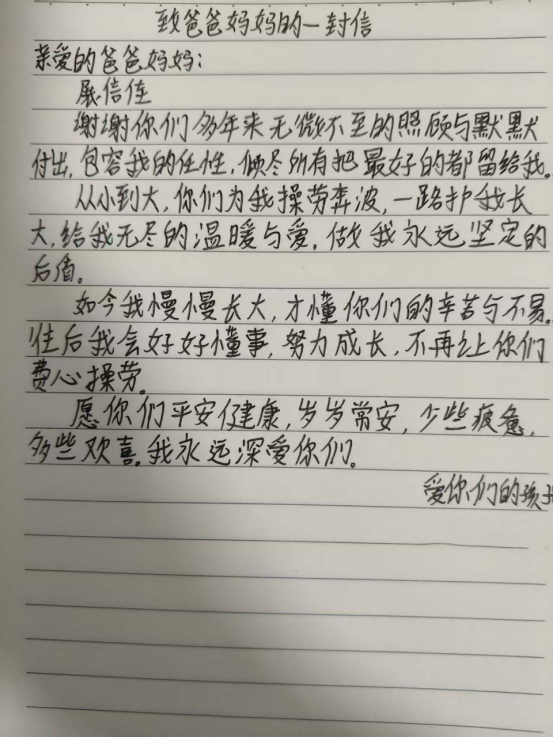 致爸爸妈妈的一封信
亲爱的爸爸妈妈：
展信佳
谢谢你们多年来无微不至的照顾与默默
付出，包容我的任性，倾尽所有把最好的都留给我。
从小到大，你们为我操劳奔波，一路护我长
大，给我无尽的温暖与爱，做我永远坚定的
后盾。
如今我慢慢长大，才懂你们的辛苦与不易。
往后我会好好懂事，努力成长，不再让你们
费心操劳。
愿你们平安健康，岁岁常安，少些疲惫，
多些欢喜。我永远深爱你们。
爱你们的孩子